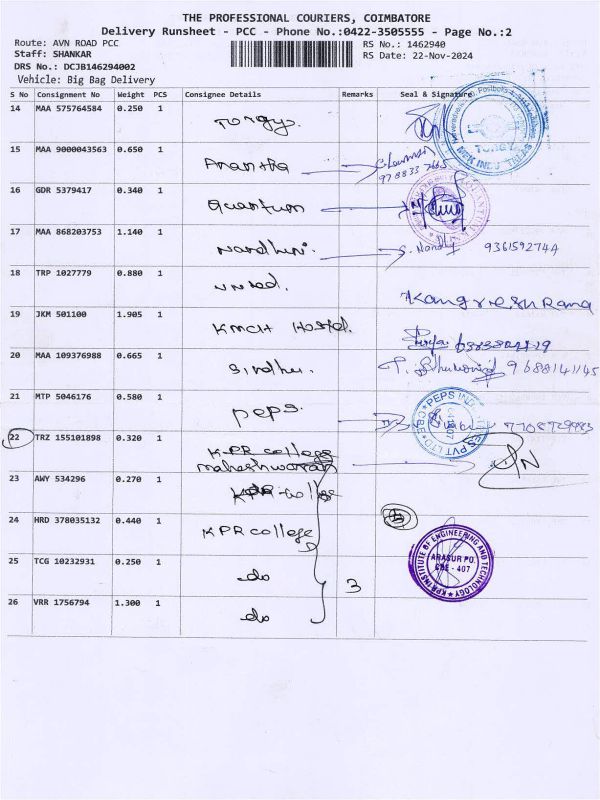 THE PROFESSIONAL COURIERS, COIMBATORE
Delivery Runsheet - PCC - Phone No.:0422-3505555 - Page No.:2
Route: AVN ROAD PCC
RS No.: 1462940
Staff: SHANKAR
RS Date: 22-Nov-2024
DRS No.: DCJB146294002
Vehicle: Big Bag Delivery
S No Consignment No Weight PCS Consignee Details Remarks Seal & Signature
14 MAA 575764584 0.250 1 Torgy TORGY
15 MAA 9000043563 0.650 1 Anantha
16 GDR 5379417 0.340 1 Quantum
17 MAA 868203753 1.140 1 9361592744
18 TRP 1027779 0.880 1
19 JKM 501100 1.905 1 KMCH Hostel.
20 MAA 109376988 0.665 1 Sindhu. 9688141145
21 MTP 5046176 0.580 1 peps. PEPS
22 TRZ 155101898 0.320 1 KPR college
Maheshwaran
23 AWY 534296 0.270 1
24 HRD 378035132 0.440 1 KPR college
25 TCG 10232931 0.250 1 do 3 KPR INSTITUTE OF ENGINEERING AND TECHNOLOGY
ARASUR PO.
CBE - 407
26 VRR 1756794 1.300 1 do